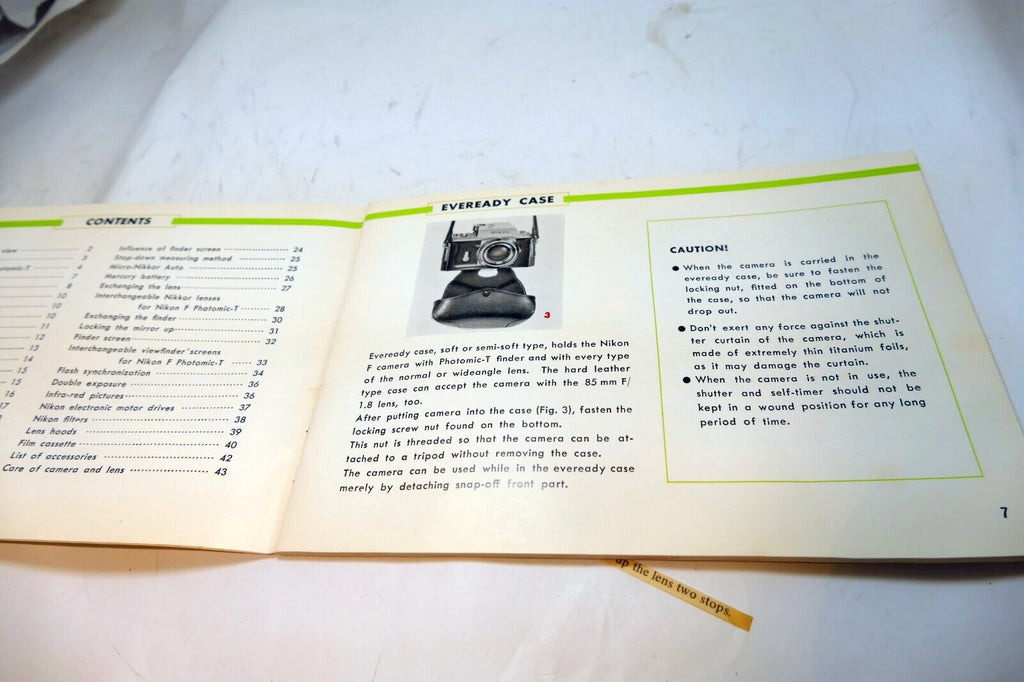 CONTENTS
view 2
3
otomic-T 4
7
8
10
10
10
11
12
13
14
15
15
16
17
Influence of finder screen 24
Stop-down measuring method 25
Micro-Nikkor Auto 25
Mercury battery 26
Exchanging the lens 27
Interchangeable Nikkor lenses
for Nikon F Photomic-T 28
Exchanging the finder 30
Locking the mirror up 31
Finder screen 32
Interchangeable viewfinder screens
for Nikon F Photomic-T 33
Flash synchronization 34
Double exposure 36
Infra-red pictures 36
Nikon electronic motor drives 37
Nikon filters 38
Lens hoods 39
Film cassette 40
List of accessories 42
Care of camera and lens 43
EVEREADY CASE
3
Eveready case, soft or semi-soft type, holds the Nikon
F camera with Photomic-T finder and with every type
of the normal or wideangle lens. The hard leather
type case can accept the camera with the 85 mm F/
1.8 lens, too.
After putting camera into the case (Fig. 3), fasten the
locking screw nut found on the bottom.
This nut is threaded so that the camera can be at-
tached to a tripod without removing the case.
The camera can be used while in the eveready case
merely by detaching snap-off front part.
CAUTION!
● When the camera is carried in the
eveready case, be sure to fasten the
locking nut, fitted on the bottom of
the case, so that the camera will not
drop out.
● Don't exert any force against the shut-
ter curtain of the camera, which is
made of extremely thin titanium foils,
as it may damage the curtain.
● When the camera is not in use, the
shutter and self-timer should not be
kept in a wound position for any long
period of time.
7
up the lens two stops.